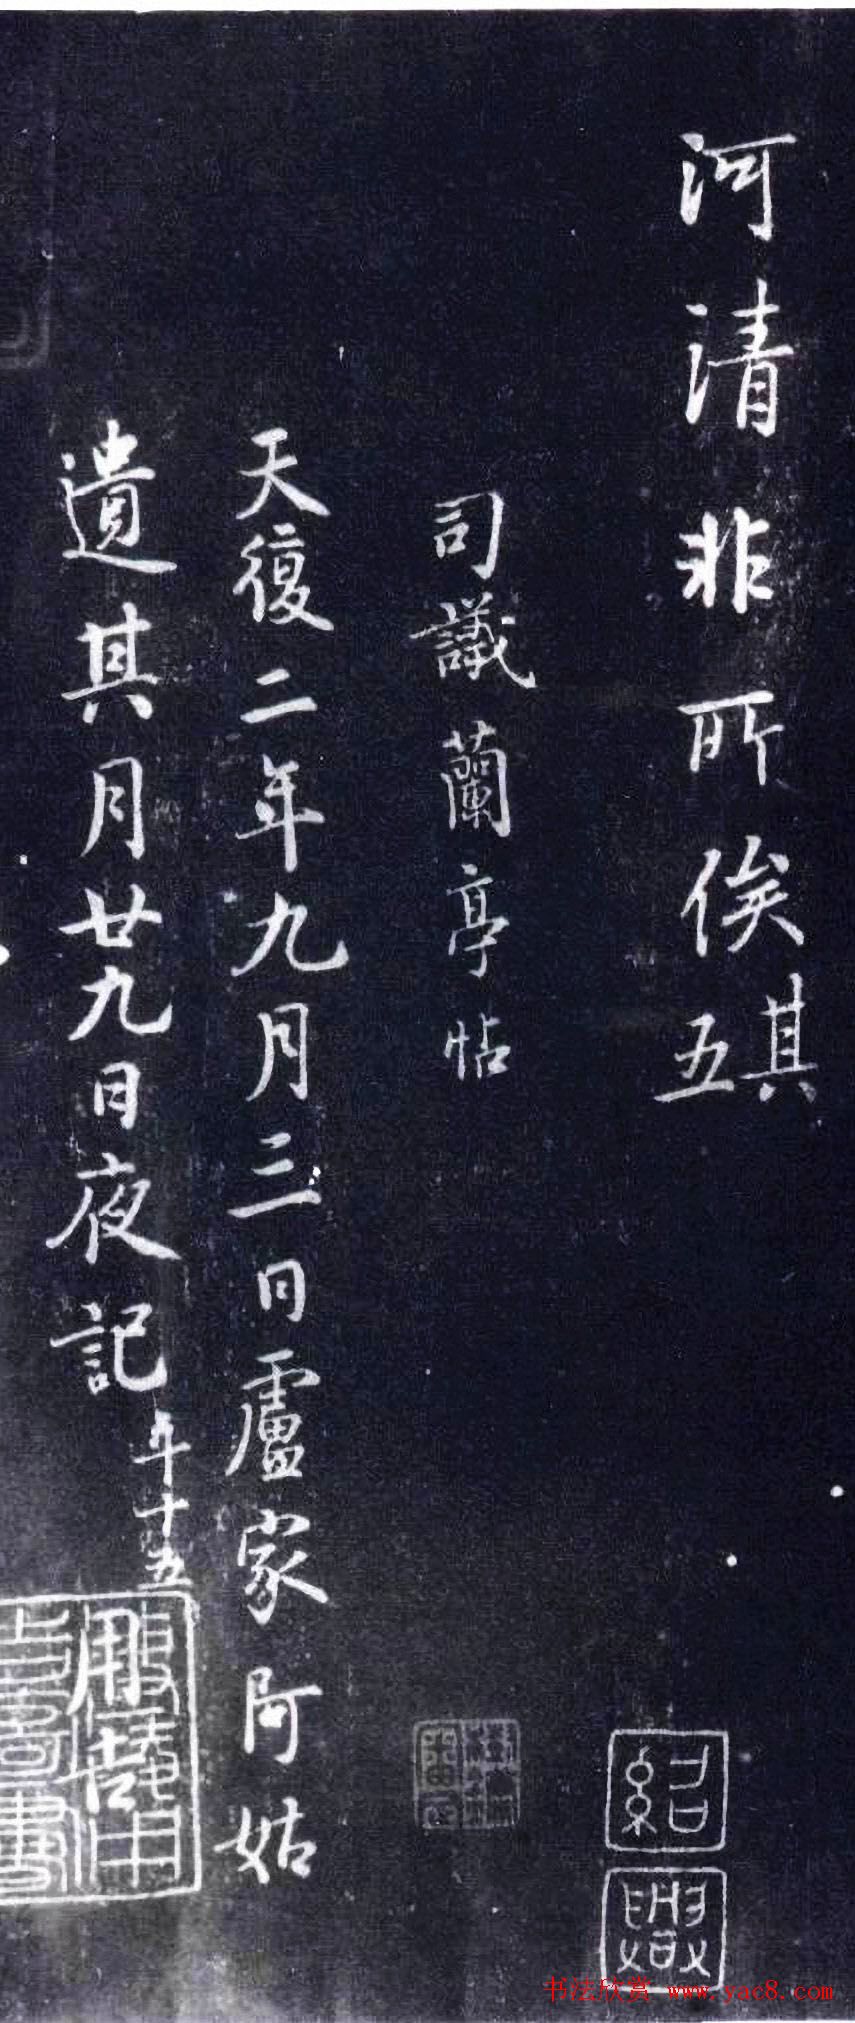 河清非所俟其五
司議蘭亭帖
天復二年九月三日盧家阿姑
遺其月廿九日夜記年十五
紹興
书法欣赏 www.yac8.com